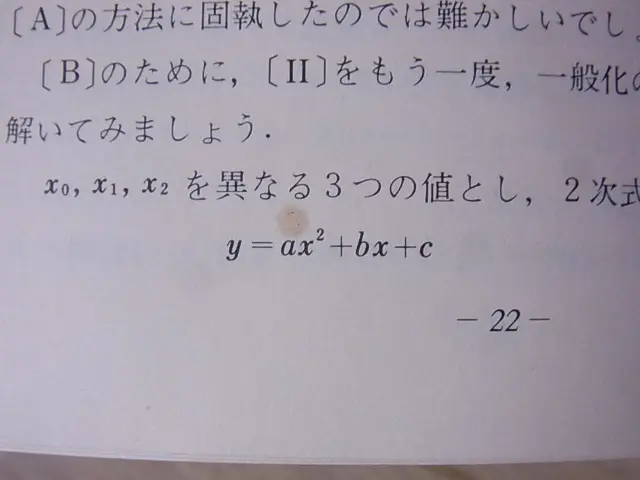 〔A〕の方法に固執したのでは難かしいでし
〔B〕のために,〔II〕をもう一度,一般化
解いてみましょう.
x₀, x₁, x₂ を異なる3つの値とし,2次式
y=ax²+bx+c
− 22 −